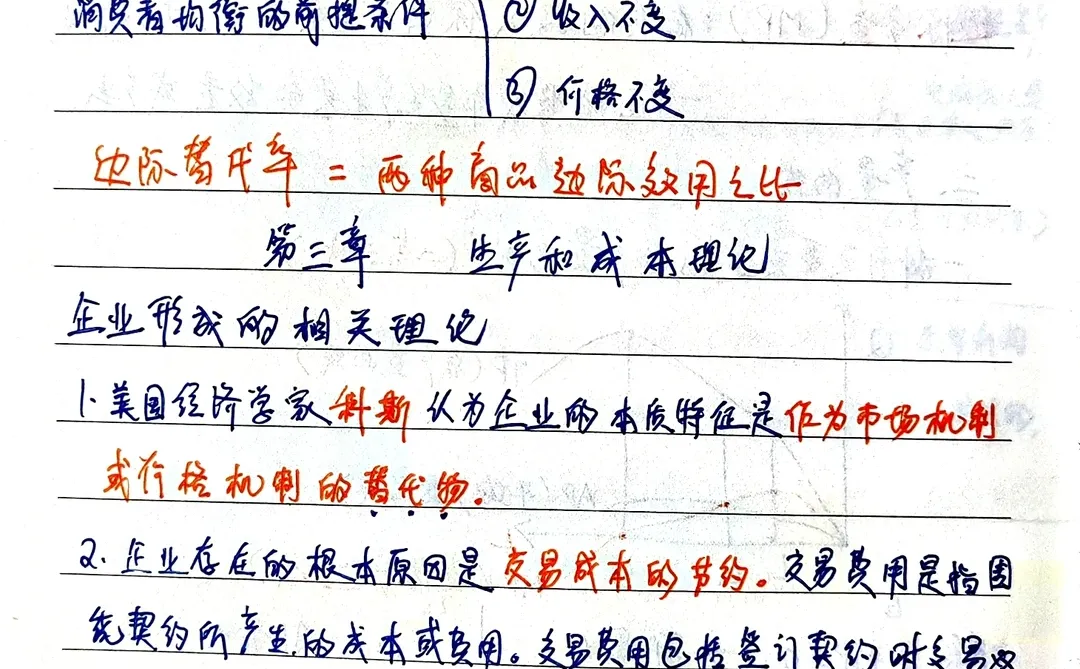 消费者均衡的前提条件 ② 收入不变
③ 价格不变
边际替代率 = 两种商品边际效用之比
第三章 生产和成本理论
企业形成的相关理论
1. 美国经济学家科斯认为企业的本质特征是作为市场机制
或价格机制的替代物。
2. 企业存在的根本原因是交易成本的节约。交易费用是指围
绕契约所产生的成本或费用。交易费用包括签订契约时交易